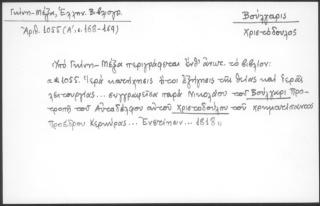 Γκίνη-Μέξα, Ἑλλην. Βιβλιογρ.
Ἀριθ. 1055 (Α', σ. 168-169)
Βούλγαρις
Χριστόδουλος
Ὑπό Γκίνη-Μέξα περιγράφεται ὑπ' ἀριθ. τό βιβλίον:
«*1055. Ἱερά κατήχησις ἤτοι ἐξήγησις τῆς θείας καί ἱερᾶς
λειτουργίας... συγγραφεῖσα παρά Νικολάου τοῦ Βούλγαρι Προ-
τροπῇ τοῦ Αὐταδέλφου αὐτοῦ Χριστοδούλου τοῦ χρηματίσαντος
Προέδρου Κερκύρας... Ἐνετίησιν... 1818»